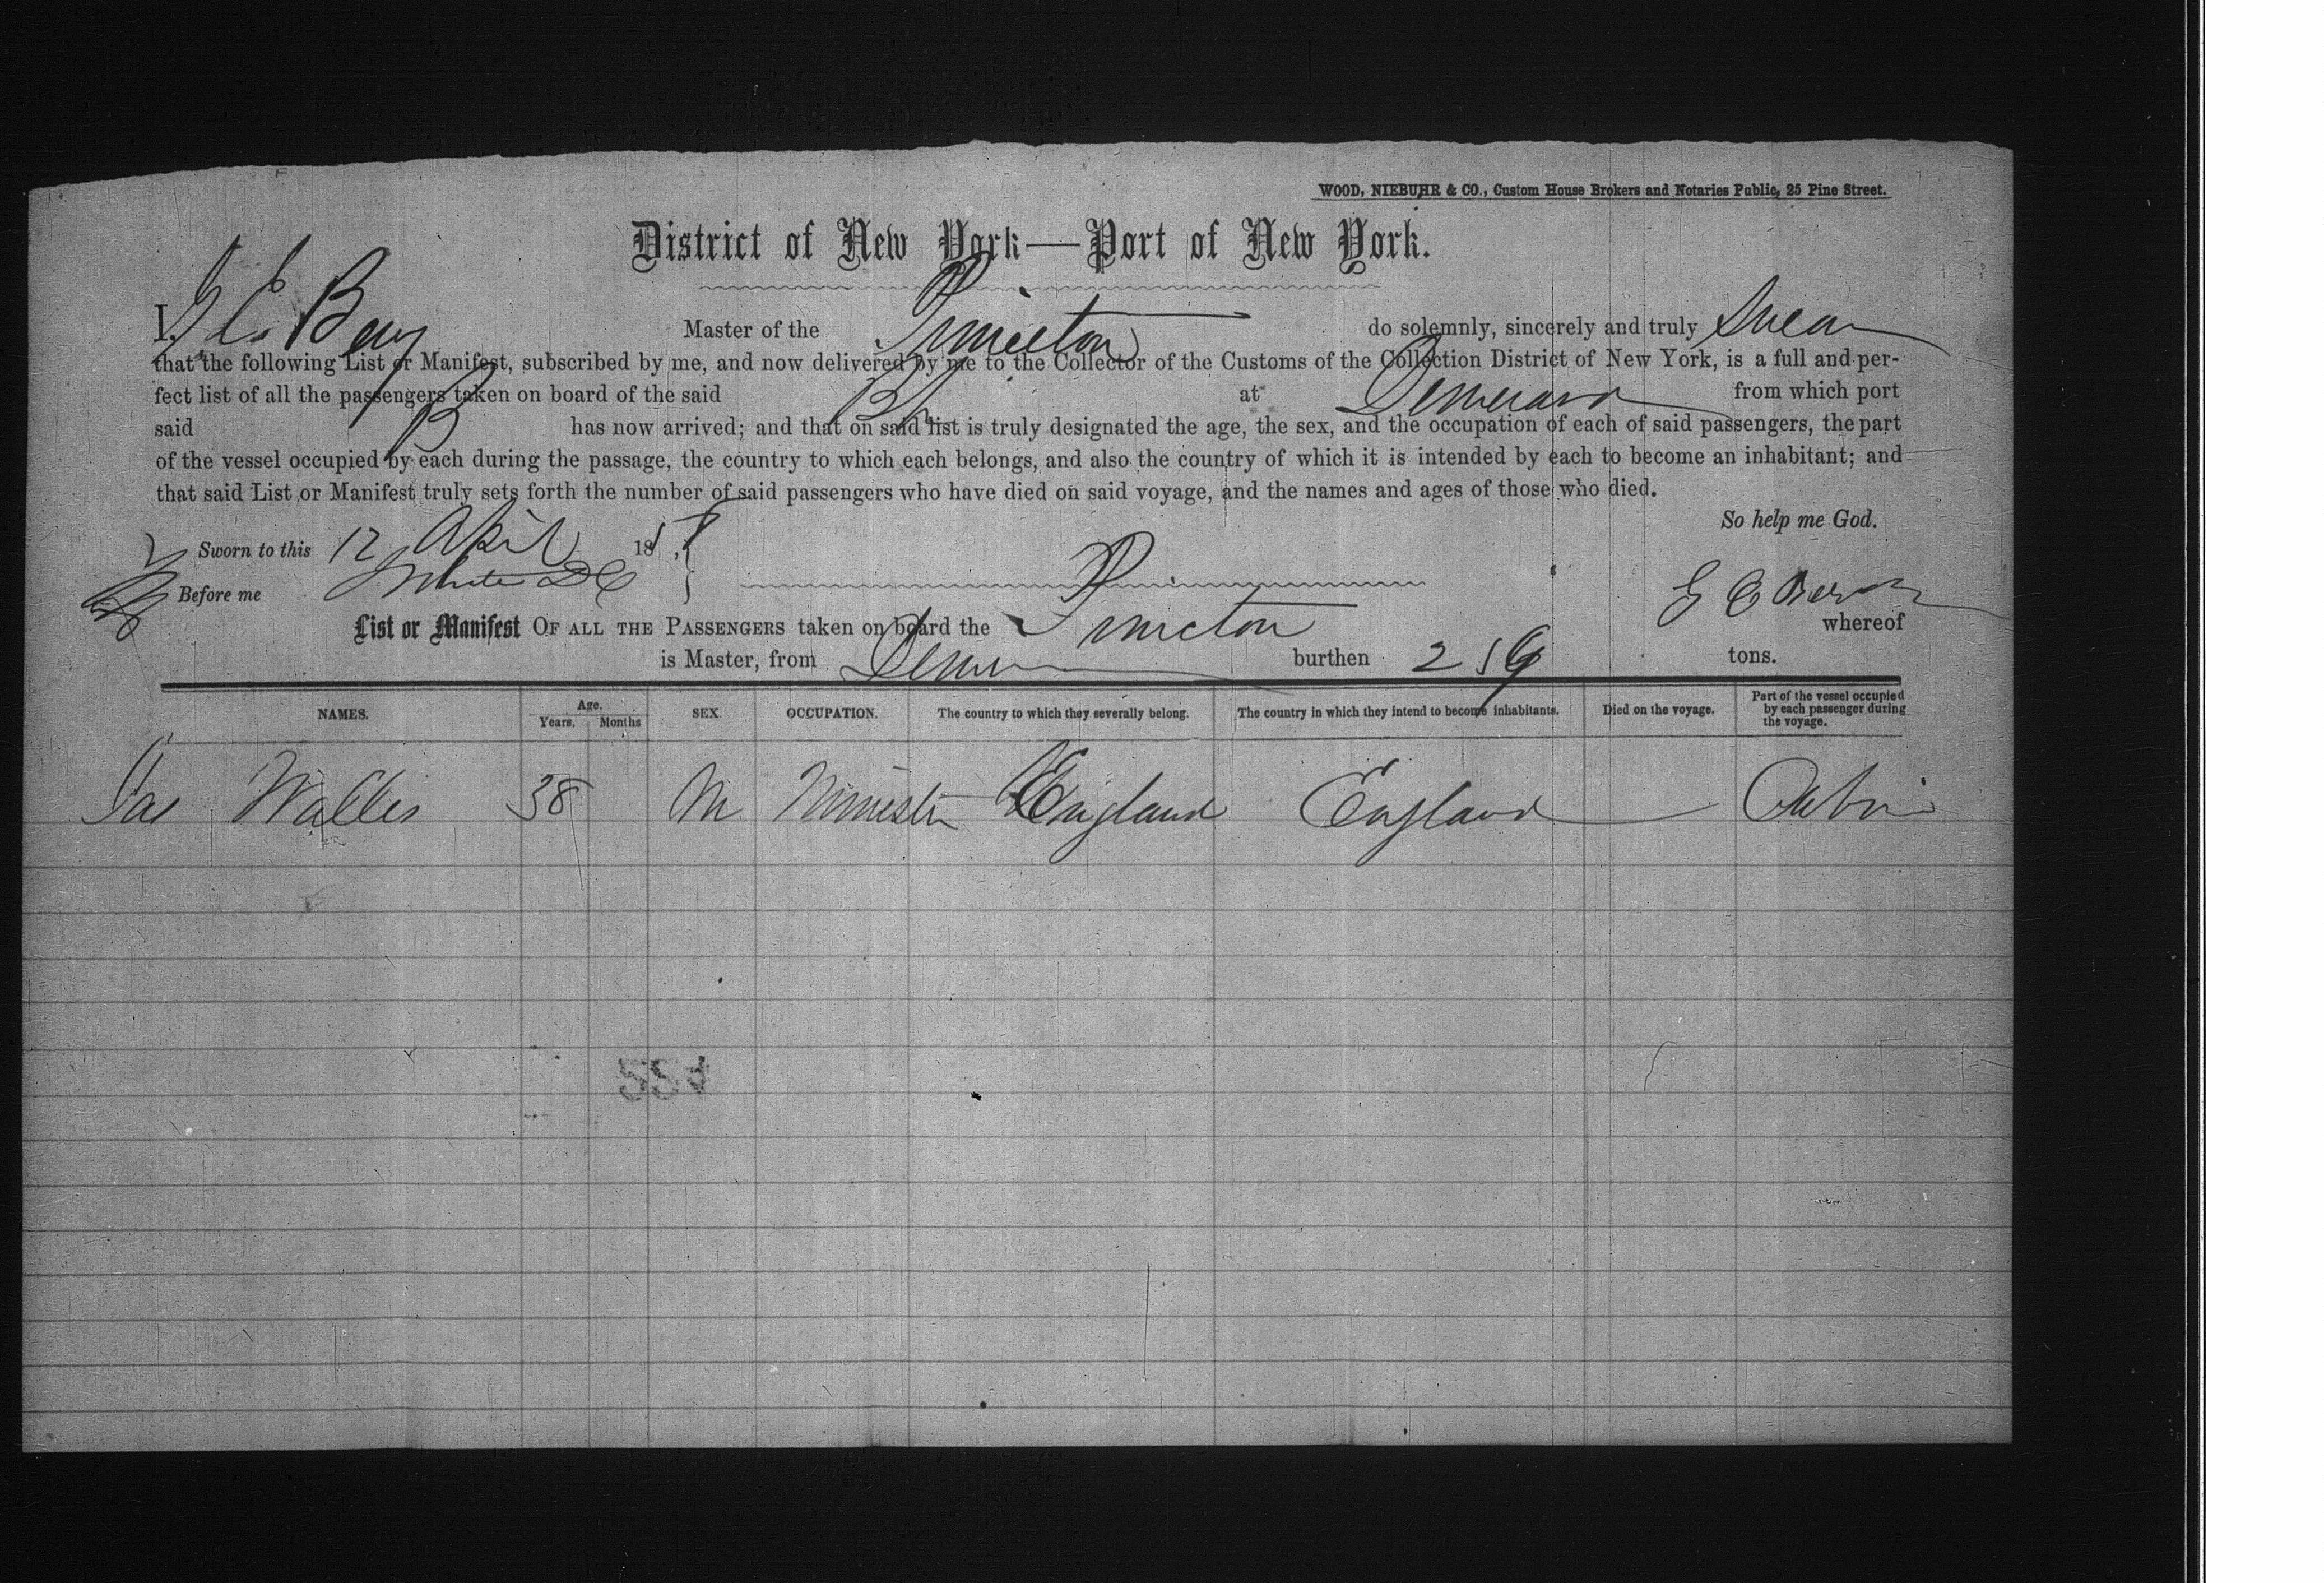 WOOD, NIEBUHR & CO., Custom House Brokers and Notaries Public, 25 Pine Street.
District of New York—Port of New York.
I, Master of the Princeton do solemnly, sincerely and truly Swear
that the following List or Manifest, subscribed by me, and now delivered by me to the Collector of the Customs of the Collection District of New York, is a full and per-
fect list of all the passengers taken on board of the said at Demerara from which port
said B has now arrived; and that on said list is truly designated the age, the sex, and the occupation of each of said passengers, the part
of the vessel occupied by each during the passage, the country to which each belongs, and also the country of which it is intended by each to become an inhabitant; and
that said List or Manifest truly sets forth the number of said passengers who have died on said voyage, and the names and ages of those who died.
So help me God.
Sworn to this 12 April 18
Before me White D C
List or Manifest OF ALL THE PASSENGERS taken on board the Princeton whereof
is Master, from Demer burthen 259 tons.
NAMES. Age. Years. Months SEX. OCCUPATION. The country to which they severally belong. The country in which they intend to become inhabitants. Died on the voyage. Part of the vessel occupied by each passenger during the voyage.
Jas Wallis 38 M Minister England England Cabin